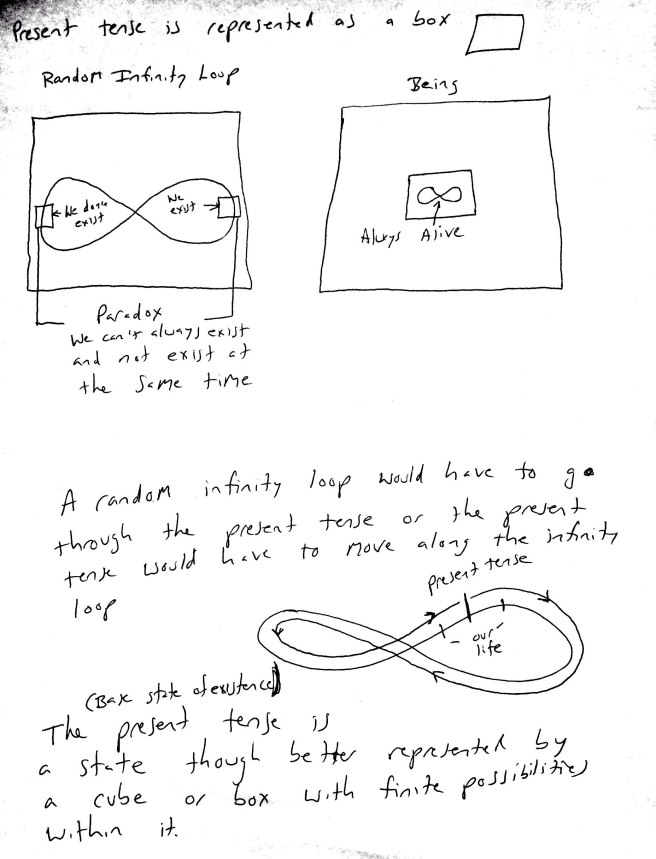 Present tense is represented as a box
Random Infinity Loop
Being
We don't
exist
We
exist
Always Alive
Paradox
We can't always exist
and not exist at
the same time
A random infinity loop would have to go
through the present tense or the present
tense would have to move along the infinity
loop
present tense
our
life
(Base state of existence)
The present tense is
a state though better represented by
a cube or box with finite possibilities
within it.